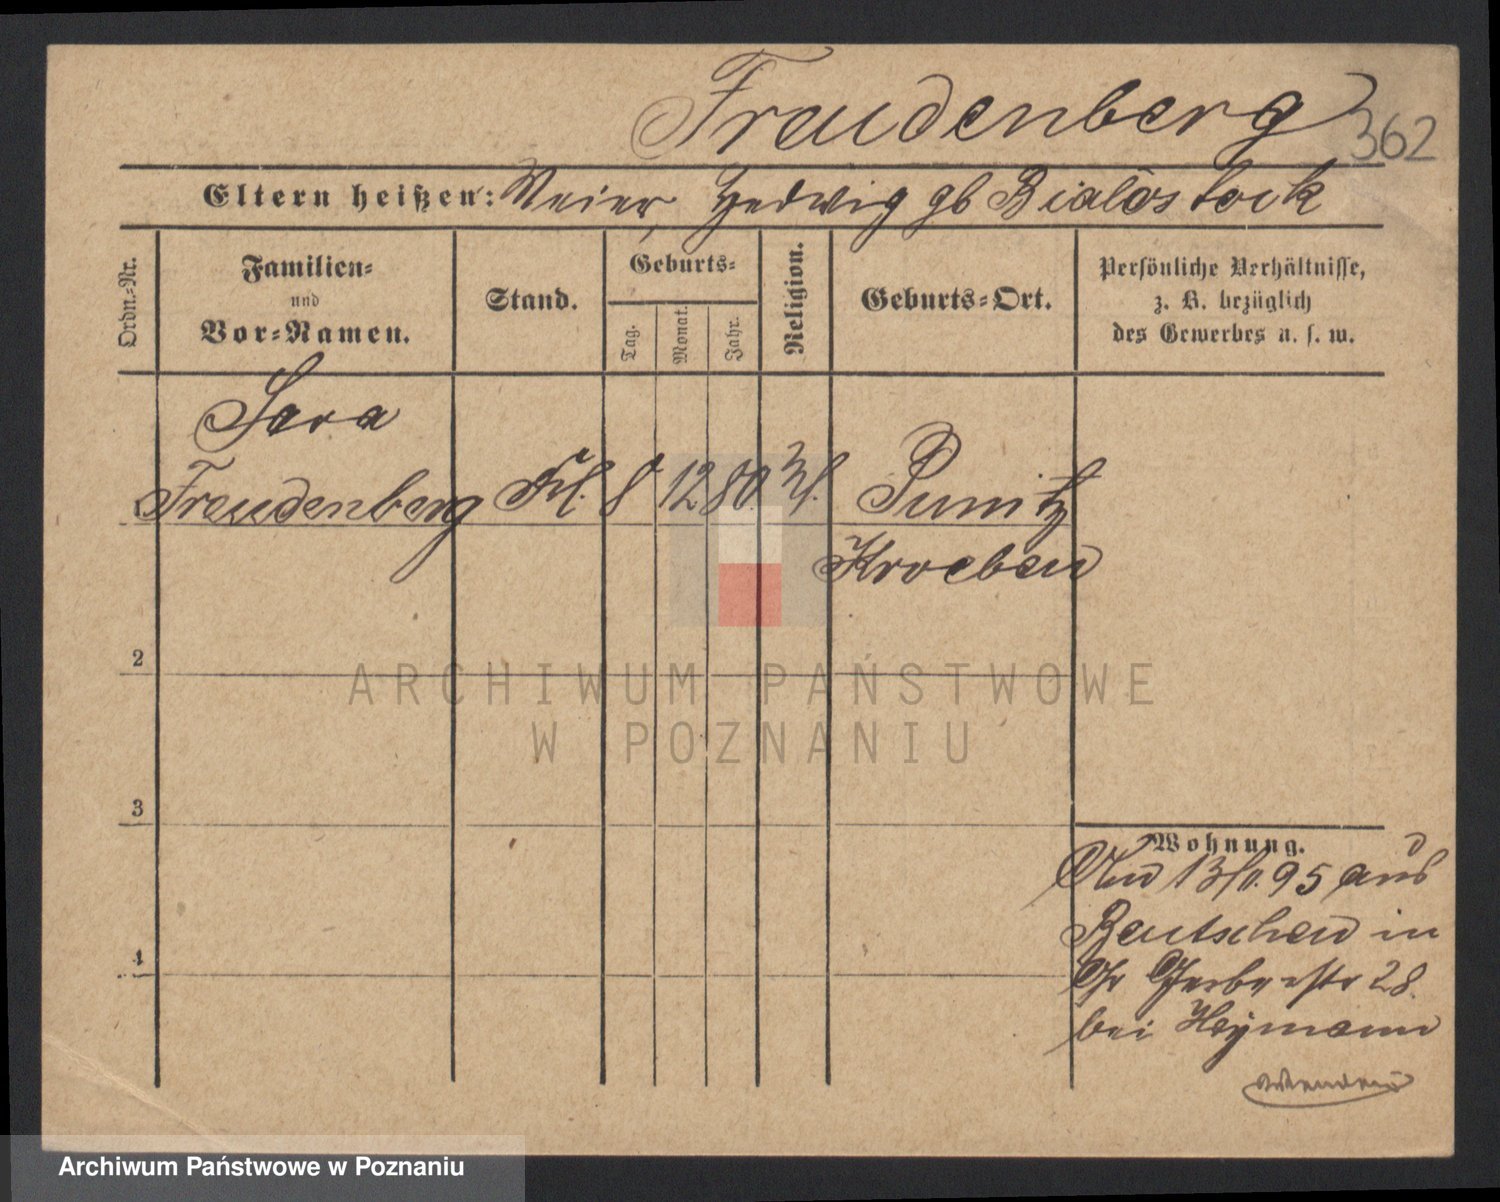 Freudenberg
362
Eltern heißen: Meier, Hedwig gb Bialostock
Ordn.-Nr.
Familien-
und
Vor-Namen.
Stand.
Geburts-
Tag.
Monat.
Jahr.
Religion.
Geburts-Ort.
Persönliche Verhältnisse,
z. B. bezüglich
des Gewerbes u. s. w.
Sara
1 Freudenberg Frl. 8 12 80 Punitz
Kroeben
2
3
4
Wohnung.
13/11.95 aus
Bentschen in
Gr Gerberstr 28.
bei Heymann
Wenden
ARCHIWUM PAŃSTWOWE
W POZNANIU
Archiwum Państwowe w Poznaniu